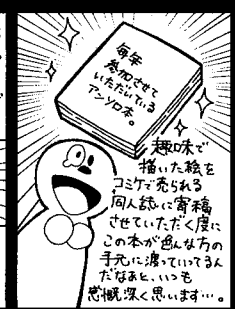 毎年
参加させて
いただいている
アンソロ本。
趣味で
描いた絵を
コミケで売られる
同人誌に寄稿
させていただく度に
この本が色んな方の
手元に渡っていってるん
だなぁと、いつも
感慨深く思います…。